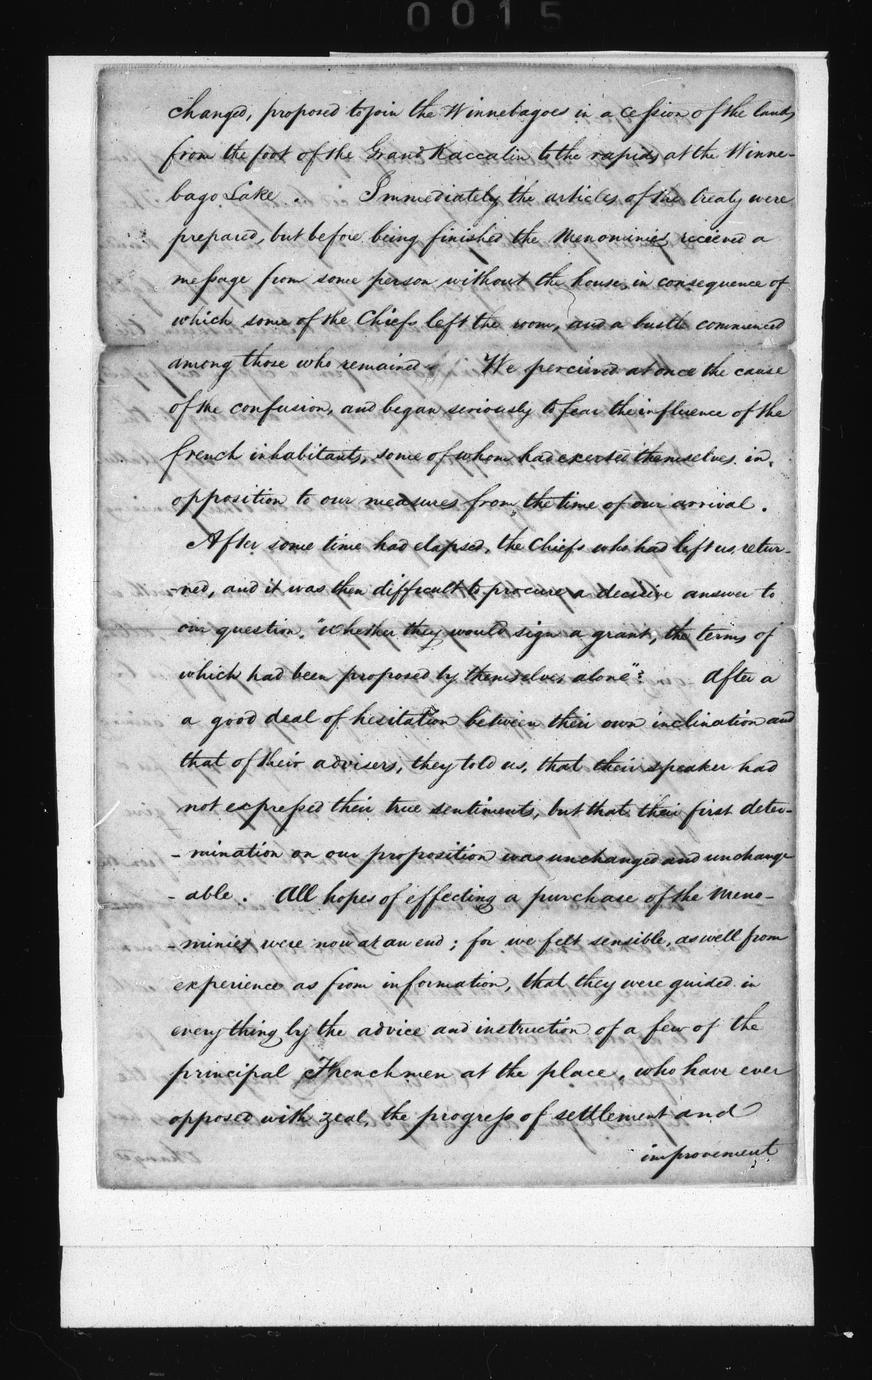 0015
changed, proposed to join the Winnebagoes in a cession of the lands
from the foot of the Grand Kaccalin to the rapids at the Winne-
bago Lake. Immediately the articles of the treaty were
prepared, but before being finished the Menominies receieved a
message from some person without the house, in consequence of
which some of the Chiefs left the room, and a bustle commenced
among those who remained. We perceived at once the cause
of the confusion, and began seriously to fear the influence of the
french inhabitants, some of whom had exerted themselves in
opposition to our measures from the time of our arrival.
After some time had elapsed, the Chiefs who had left us, retur-
-ned, and it was then difficult to procure a decisive answer to
our question, "whether they would sign a grant, the terms of
which had been proposed by themselves alone"? After a
a good deal of hesitation between their own inclination and
that of their advisers, they told us, that their speaker had
not expressed their true sentiments, but that their first deter-
-mination on our proposition was unchanged and unchange
-able. All hopes of effecting a purchase of the Meno-
-minies were now at an end; for we felt sensible, as well from
experience as from information, that they were guided in
every thing by the advice and instruction of a few of the
principal Frenchmen at the place, who have ever
opposed with zeal, the progress of settlement and
improvement